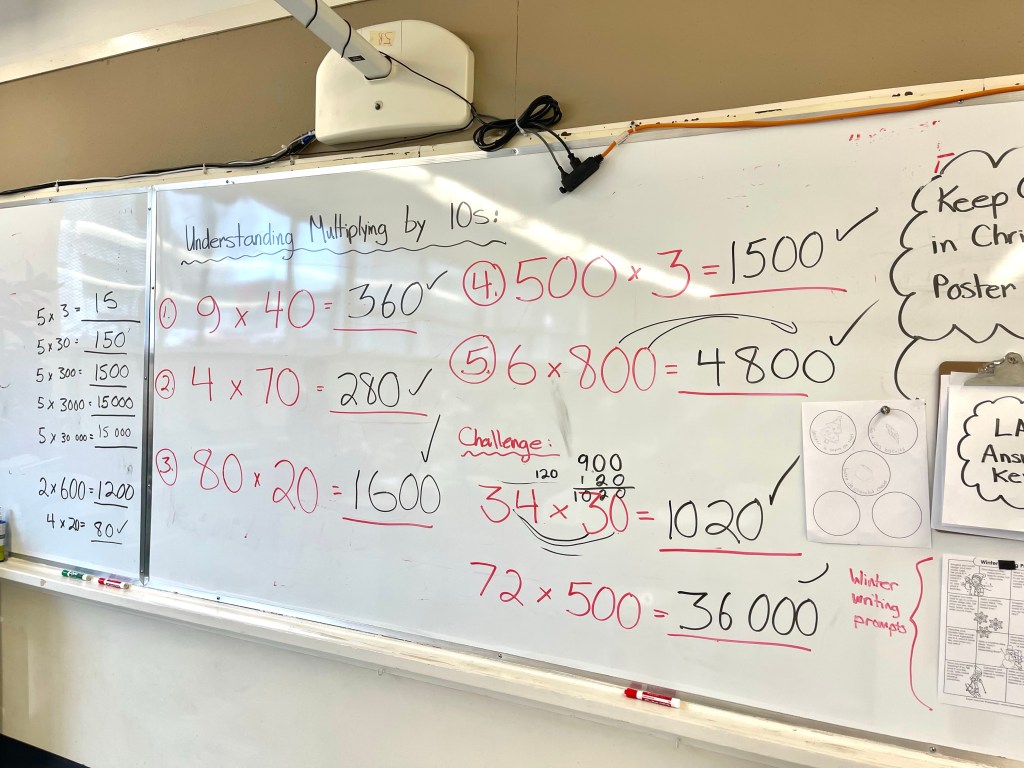 5 x 3 = 15
5 x 30 = 150
5 x 300 = 1500
5 x 3000 = 15000
5 x 30 000 = 15 000
2 x 600 = 1200
4 x 20 = 80 ✓
Understanding Multiplying by 10s:
1. 9 x 40 = 360 ✓
2. 4 x 70 = 280 ✓
3. 80 x 20 = 1600 ✓
4. 500 x 3 = 1500 ✓
5. 6 x 800 = 4800 ✓
Challenge:
120
900
120
1020
34 x 30 = 1020 ✓
72 x 500 = 36 000 ✓
Keep
in Chri
Poster
LA
Answ
Key
Winter
writing
prompts
Winter